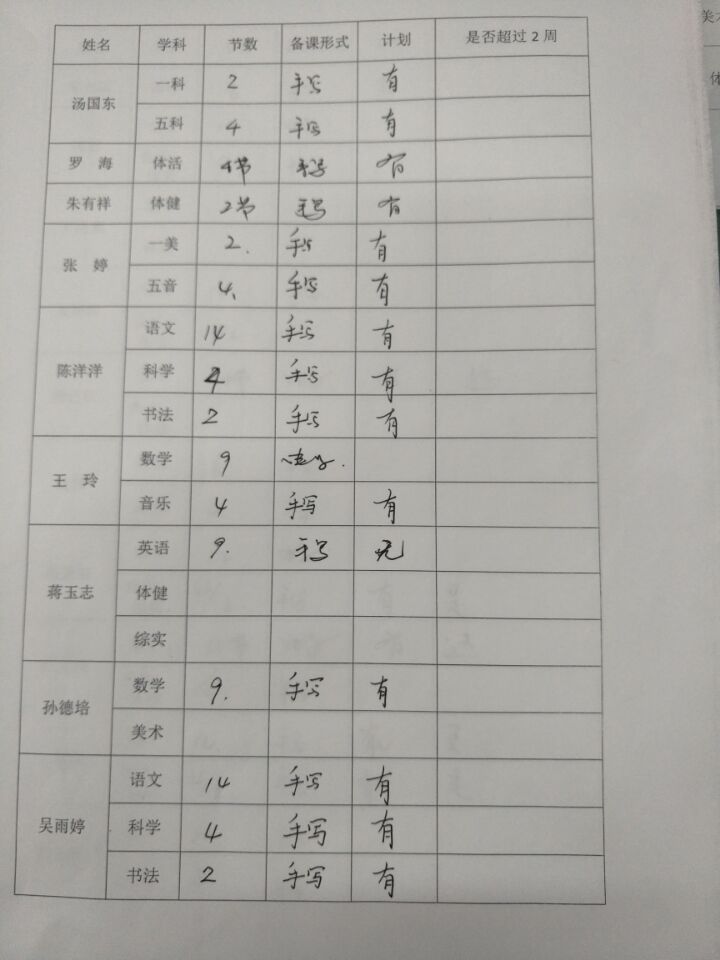 姓名 学科 节数 备课形式 计划 是否超过2周
汤国东 一科 2 手写 有
五科 4 手写 有
罗 海 体活 4节 手写 有
朱有祥 体健 2节 手写 有
张 婷 一美 2. 手写 有
五音 4. 手写 有
陈洋洋 语文 14 手写 有
科学 4 手写 有
书法 2 手写 有
王 玲 数学 9
音乐 4 手写 有
蒋玉志 英语 9. 手写 无
体健
综实
孙德培 数学 9. 手写 有
美术
吴雨婷 语文 14 手写 有
科学 4 手写 有
书法 2 手写 有
美术
体